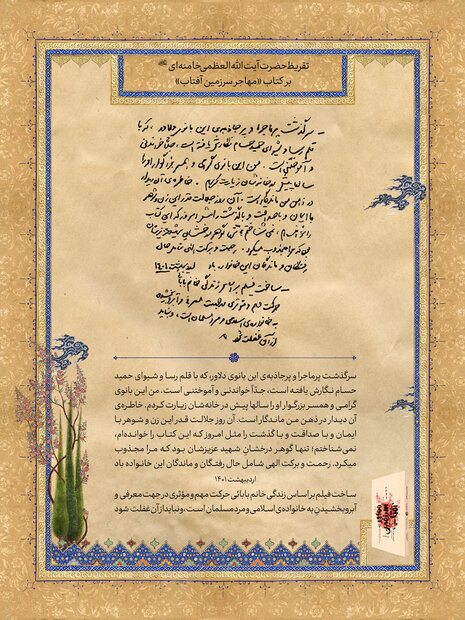 تقریظ حضرت آیت الله العظمی خامنه‌ای
بر کتاب «مهاجر سرزمین آفتاب»
ـ سرگذشت پرماجرا و پرجاذبه‌ی این بانوی دلاور، که با
قلم رسا و شیوای حمید حسام نگارش یافته است، جدّاً خواندنی
و آموختنی است. من این بانوی گرامی و همسر بزرگوار او را
سالها پیش در خانه‌شان زیارت کردم. خاطره‌ی آن دیدار
در ذهن من ماندگار است. آن روز جلالت قدر این زن و شوهر
با ایمان و با صداقت و با گذشت را مثل امروز که این کتاب
را خوانده‌ام، نمی‌شناختم؛ تنها گوهر درخشان شهید عزیزشان
بود که مرا مجذوب میکرد. رحمت و برکت الهی شامل حال
رفتگان و ماندگان این خانواده باد اردیبهشت ۱۴۰۱
ـ ساخت فیلم بر اساس زندگی خانم بابائی
حرکت مهم و مؤثری در جهت معرفی و آبرو بخشیدن
به خانواده‌ی اسلامی و مرد مسلمان است، و نباید
از آن غفلت شود
سرگذشت پرماجرا و پرجاذبه‌ی این بانوی دلاور، که با قلم رسا و شیوای حمید
حسام نگارش یافته است، جدّاً خواندنی و آموختنی است. من این بانوی
گرامی و همسر بزرگوار او را سالها پیش در خانه‌شان زیارت کردم. خاطره‌ی
آن دیدار در ذهن من ماندگار است. آن روز جلالت قدر این زن و شوهر با
ایمان و با صداقت و با گذشت را مثل امروز که این کتاب را خوانده‌ام،
نمی‌شناختم؛ تنها گوهر درخشان شهید عزیزشان بود که مرا مجذوب
میکرد. رحمت و برکت الهی شامل حال رفتگان و ماندگان این خانواده باد
اردیبهشت ۱۴۰۱
ساخت فیلم بر اساس زندگی خانم بابائی حرکت مهم و مؤثری در جهت معرفی و
آبرو بخشیدن به خانواده‌ی اسلامی و مرد مسلمان است، و نباید از آن غفلت شود